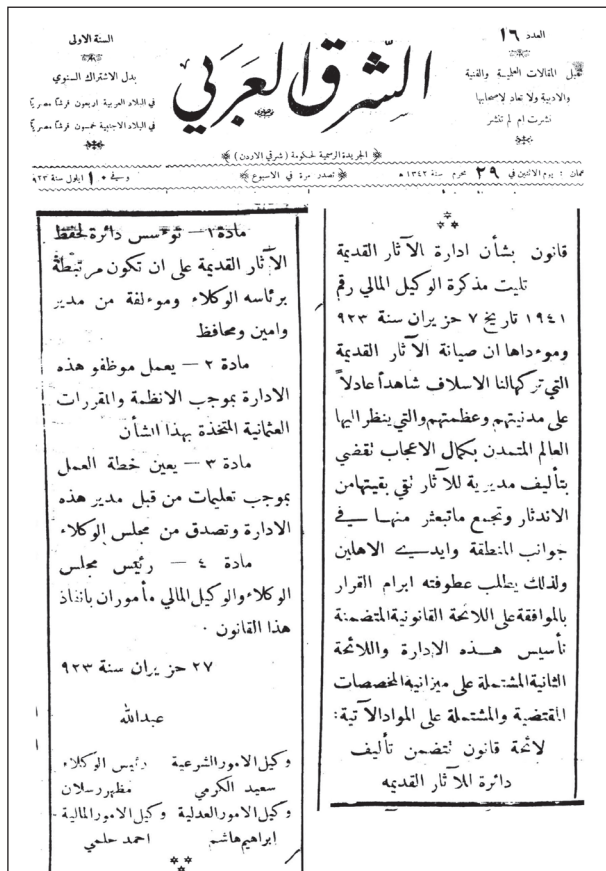 العدد ١٦
تقبل المقالات العلمية والفنية
والادبية ولا تعاد لاصحابها
نشرت ام لم تنشر
الشرق العربي
السنة الاولى
بدل الاشتراك السنوي
في البلاد العربية اربعون قرشا مصريا
في البلاد الاجنبية خمسون قرشا مصريا
الجريدة الرسمية لحكومة (شرقي الاردن)
عمان : يوم الاثنين في ٢٩ محرم سنة ١٣٤٢ ه
تصدر مرة في الاسبوع
وفي ١٠ ايلول سنة ٩٢٣
قانون بشأن ادارة الآثار القديمة
تليت مذكرة الوكيل المالي رقم
١٩٤١ تاريخ ٧ حزيران سنة ٩٢٣
وموءداها ان صيانة الآثار القديمة
التي تركهالنا الاسلاف شاهداً عادلاً
على مدنيتهم وعظمتهم والتي ينظر اليها
العالم المتمدن بكمال الاعجاب تقضي
بتأليف مديرية للآثار تقي بقيتهامن
الاندثار وتجمع ماتبعثر منهـا في
جوانب المنطقة وايدي الاهلين
ولذلك يطلب عطوفته ابرام القرار
بالموافقة على اللائحة القانونية المتضمنة
تأسيس هـذه الإدارة واللائحة
الثانية المشتملة على ميزانية المخصصات
المقتضية والمشتملة على المواد الآتية:
لائحة قانون تتضمن تأليف
دائرة للآثار القديمه
مادة ١ — توءسس دائرة لحفظ
الآثار القديمة على ان تكون مرتبطة
برئاسه الوكلاء وموءلفة من مدير
وامين ومحافظ
مادة ٢ — يعمل موظفو هذه
الادارة بموجب الانظمة والمقررات
العثمانية المتخذة بهذا الشأن
مادة ٣ — يعين خطة العمل
بموجب تعليمات من قبل مدير هذه
الادارة وتصدق من مجلس الوكلاء
مادة ٤ — رئيس مجلس
الوكلاء والوكيل المالي مأموران بانفاذ
هذا القانون .
٢٧ حزيران سنة ٩٢٣
عبدالله
وكيل الامور الشرعية رئيس الوكلاء
سعيد الكرمي مظهر رسلان
وكيل الامور العدلية وكيل الامور المالية
ابراهيم هاشم احمد حلمي